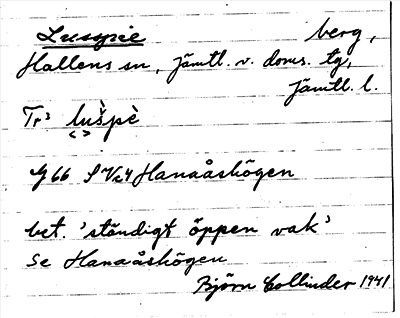 Luspie berg,
Hallens sn, Jämtl. v. doms. tg,
Jämtl. l.
Tr: lušpè
G 66 SV 24 Hanaåshögen
bet. 'ständigt öppen vak'
Se Hanaåshögen
Björn Collinder 1941